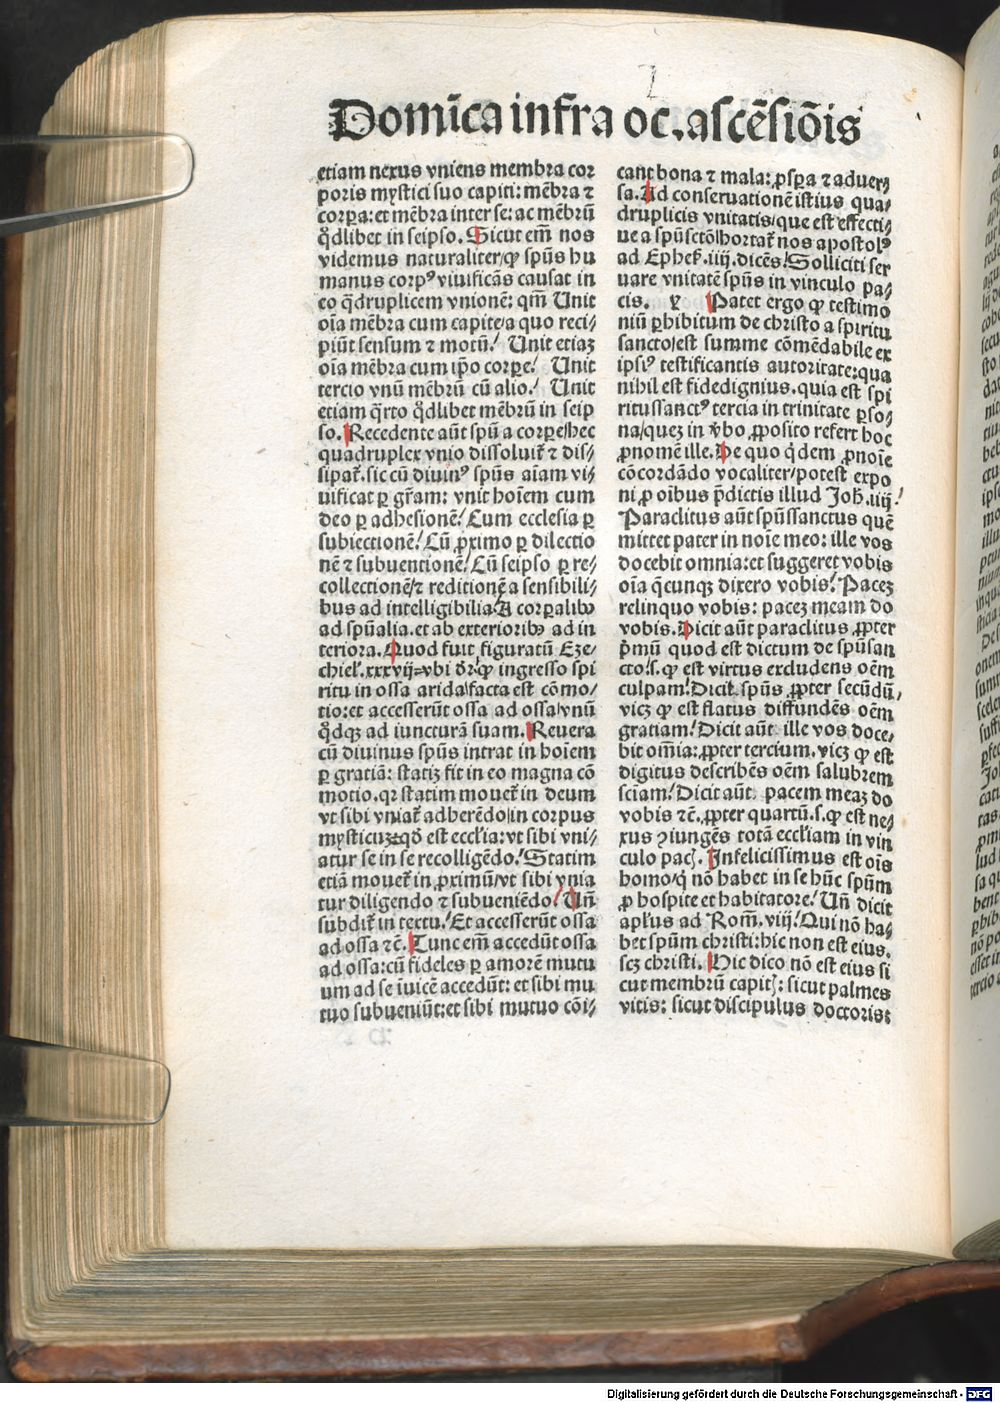 Domīca infra oc. ascēsiōis
etiam nexus vniens membra cor
poris mystici suo capiti: mēbra ⁊
corꝑa: et mēbra inter se: ac mēbrū
qđlibet in seipso. Sicut em̄ nos
videmus naturaliter/ꝙ spūs hu
manus corpꝰ viuificās causat in
eo q̄druplicem vnionē: qm̄ Unit
oīa mēbra cum capite/a quo reci⸗
piūt sensum ⁊ motū/ Unit etiaꝫ
oīa mēbra cum ip̄o corꝑe/ Unit
tercio vnū mēbrū cū alio/ Unit
etiam q̄rto qđlibet mēbrū in seip
so. Recedente aūt spū a corꝑe/hec
quadruplex vnio dissoluit̄ ⁊ dis⸗
sipat̄. sic cū diuinꝰ spūs aīam vi⸗
uificat ꝑ gr̄am: vnit hoīem cum
deo ꝑ adhesionē/ Cum ecclesia ꝑ
subiectionē/ Cū ꝓximo ꝑ dilectio
nē ⁊ subuentionē/ Cū seipso ꝑ re⸗
collectionē/⁊ reditionē a sensibili⸗
bus ad intelligibilia/A corꝑalibꝰ
ad spūalia. et ab exterioribꝰ ad in
teriora. Quod fuit figuratū Eze⸗
chiel. xxxvij. vbi dr̄ ꝙ ingresso spi
ritu in ossa arida/facta est cōmo⸗
tio: et accesserūt ossa ad ossa/vnū
qđqꝫ ad iuncturā suam. Reuera
cū diuinus spūs intrat in hoīem
ꝑ gratiā: statiꝫ fit in eo magna cō
motio. qꝛ statim mouet̄ in deum
vt sibi vniat̄ adherēdo/in corpus
mysticuꝫ qđ est eccl̄ia: vt sibi vni⸗
atur se in se recolligēdo/ Statim
etiā mouet̄ in ꝓximū/vt sibi vnia
tur diligendo ⁊ subueniēdo/ Uñ
subdit̄ in textu/ Et accesserūt ossa
ad ossa ⁊c̄. Tunc em̄ accedūt ossa
ad ossa: cū fideles ꝑ amorē mutu
um ad se iuicē accedūt: et sibi mu
tuo subueniūt: et sibi mutuo cōi⸗
cant bona ⁊ mala: ꝓsꝑa ⁊ aduer⸗
sa. Ad conseruationē istius qua⸗
druplicis vnitatis/que est effecti⸗
ue a spūsctō/hortat̄ nos apostolꝰ
ad Ephes. iiij. dicēs/ Solliciti ser
uare vnitatē spūs in vinculo pa⸗
cis. Patet ergo ꝙ testimo
niū ꝑhibitum de christo a spiritu
sancto/est summe cōmēdabile ex
ipsiꝰ testificantis autoritate: qua
nihil est fidedignius. quia est spi
ritussanctꝰ tercia in trinitate ꝑso⸗
na/queꝫ in v̄bo ꝓposito refert hoc
ꝓnomē ille. De quo q̇dem ꝓnoīe
cōcordādo vocaliter/potest expo
ni ꝓ oībus p̄dictis illud Joh. iiij/
Paraclitus aūt spūssanctus quē
mittet pater in noīe meo: ille vos
docebit omnia: et suggeret vobis
oīa q̄cunqꝫ dixero vobis/ Paceꝫ
relinquo vobis: paceꝫ meam do
vobis. Dicit aūt paraclitus ꝓpter
p̄mū quod est dictum de spūsan
cto/.s. ꝙ est virtus excludens oēm
culpam/ Dicit spūs ꝓpter secūdū,
viꝫ ꝙ est flatus diffundēs oēm
gratiam/ Dicit aūt ille vos doce⸗
bit om̄ia: ꝓpter tercium. viꝫ ꝙ est
digitus describēs oēm salubrem
sciam/ Dicit aūt pacem meaꝫ do
vobis ⁊c̄. ꝓpter quartū. s. ꝙ est ne⸗
xus ꝯiungēs totā eccl̄iam in vin
culo pacꝭ. Infelicissimus est oīs
homo/q̇ nō habet in se hūc spūm
ꝓ hospite et habitatore/ Uñ dicit
apl̄us ad Rom̄. viij/ Qui nō ha⸗
bet spūm christi: hic non est eius.
scꝫ christi. Hic dico nō est eius si
cut membrū capitꝭ: sicut palmes
vitis: sicut discipulus doctoris:
Digitalisierung gefördert durch die Deutsche Forschungsgemeinschaft - DFG